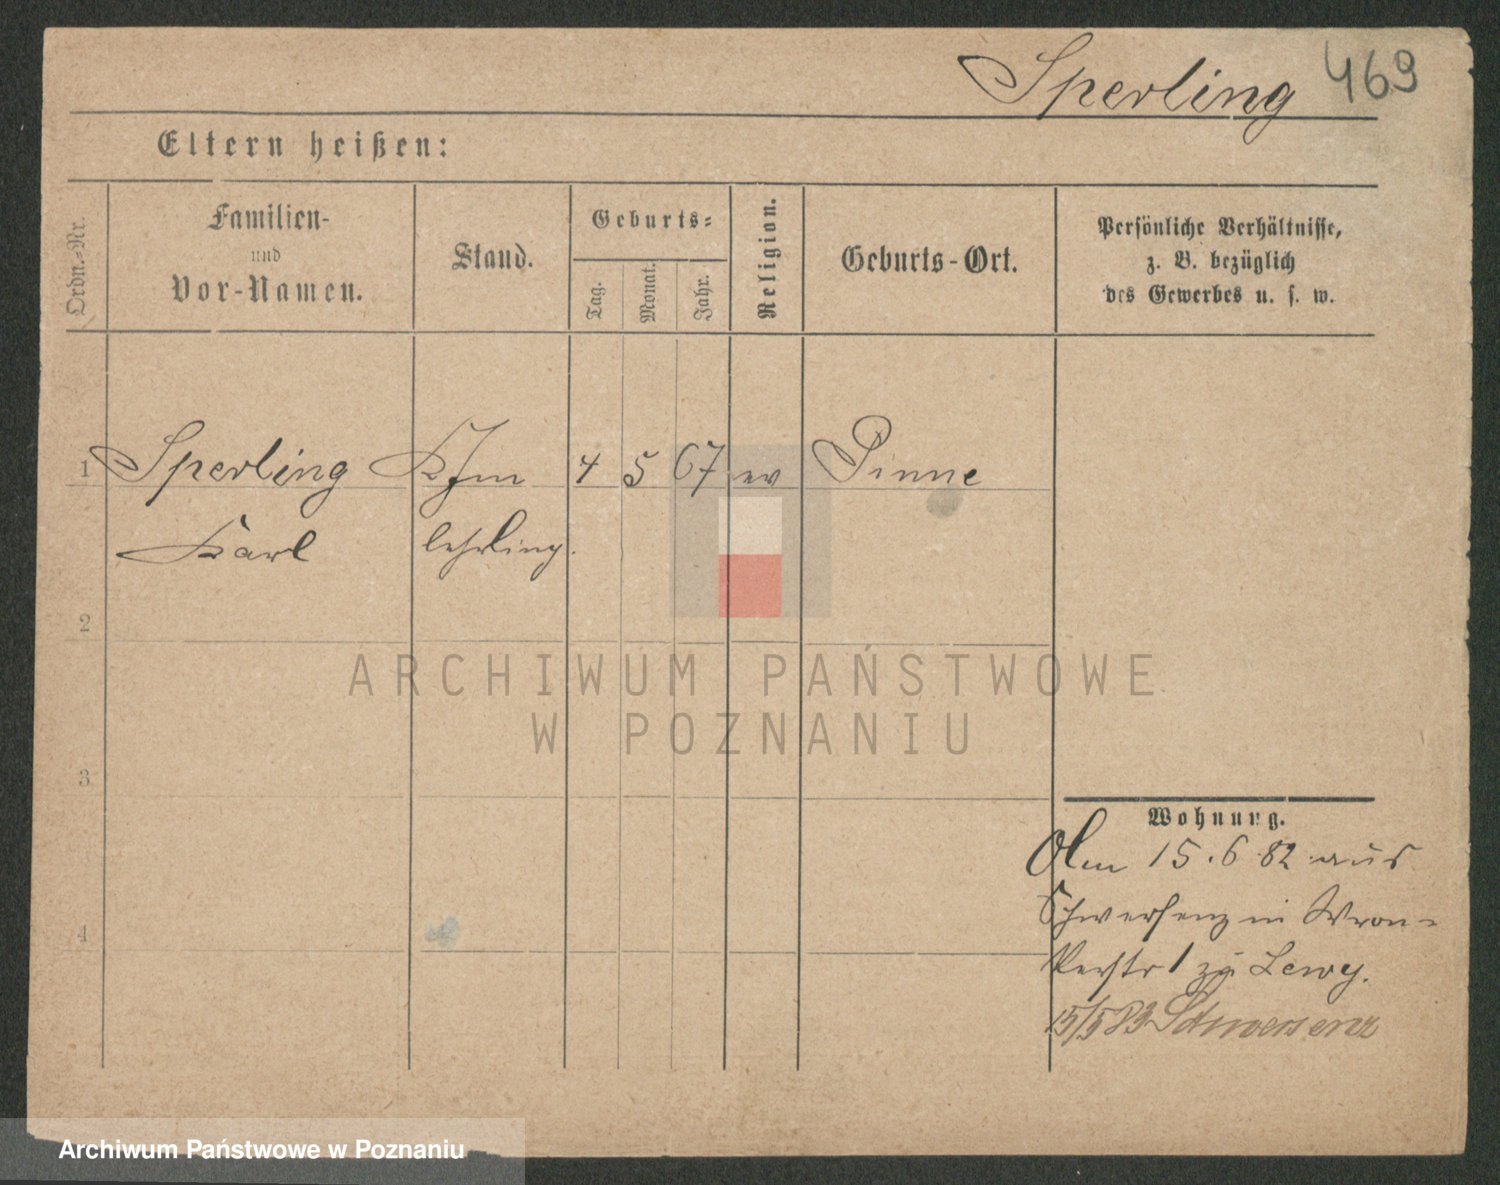 Sperling 469
Eltern heißen:
Ordn.-Nr.
Familien-
und
Vor-Namen.
Stand.
Geburts-
Tag.
Monat.
Jahr.
Religion.
Geburts-Ort.
Persönliche Verhältnisse,
z. B. bezüglich
des Gewerbes u. s. w.
1 Sperling Kfm 4 5 67 ev Pinne
Karl lehrling.
2
3
4
ARCHIWUM PAŃSTWOWE
W POZNANIU
Wohnung.
Am 15.6 82 aus
Schwersenz in Wron-
kerstr 1 zu Lewy.
15/5 83 Schwersenz
Archiwum Państwowe w Poznaniu